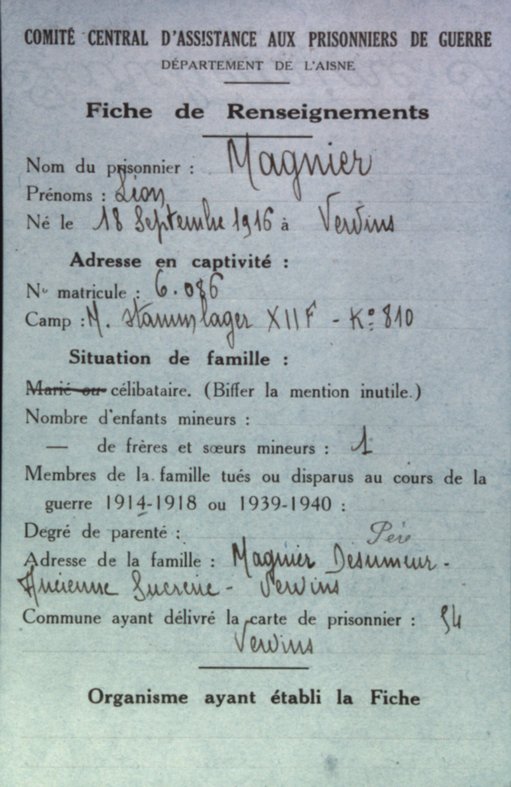 COMITÉ CENTRAL D'ASSISTANCE AUX PRISONNIERS DE GUERRE
DÉPARTEMENT DE L'AISNE
Fiche de Renseignements
Nom du prisonnier : Magnier
Prénoms : Léon
Né le 18 Septembre 1916 à Vervins
Adresse en captivité :
No matricule : 6.086
Camp : M. Stammlager XII F - Ko 810
Situation de famille :
Marié ou célibataire. (Biffer la mention inutile.)
Nombre d'enfants mineurs :
— de frères et sœurs mineurs : 1
Membres de la famille tués ou disparus au cours de la
guerre 1914-1918 ou 1939-1940 :
Degré de parenté : Père
Adresse de la famille : Magnier Desumeur -
Ancienne Sucrerie - Vervins
Commune ayant délivré la carte de prisonnier : 54
Vervins
Organisme ayant établi la Fiche